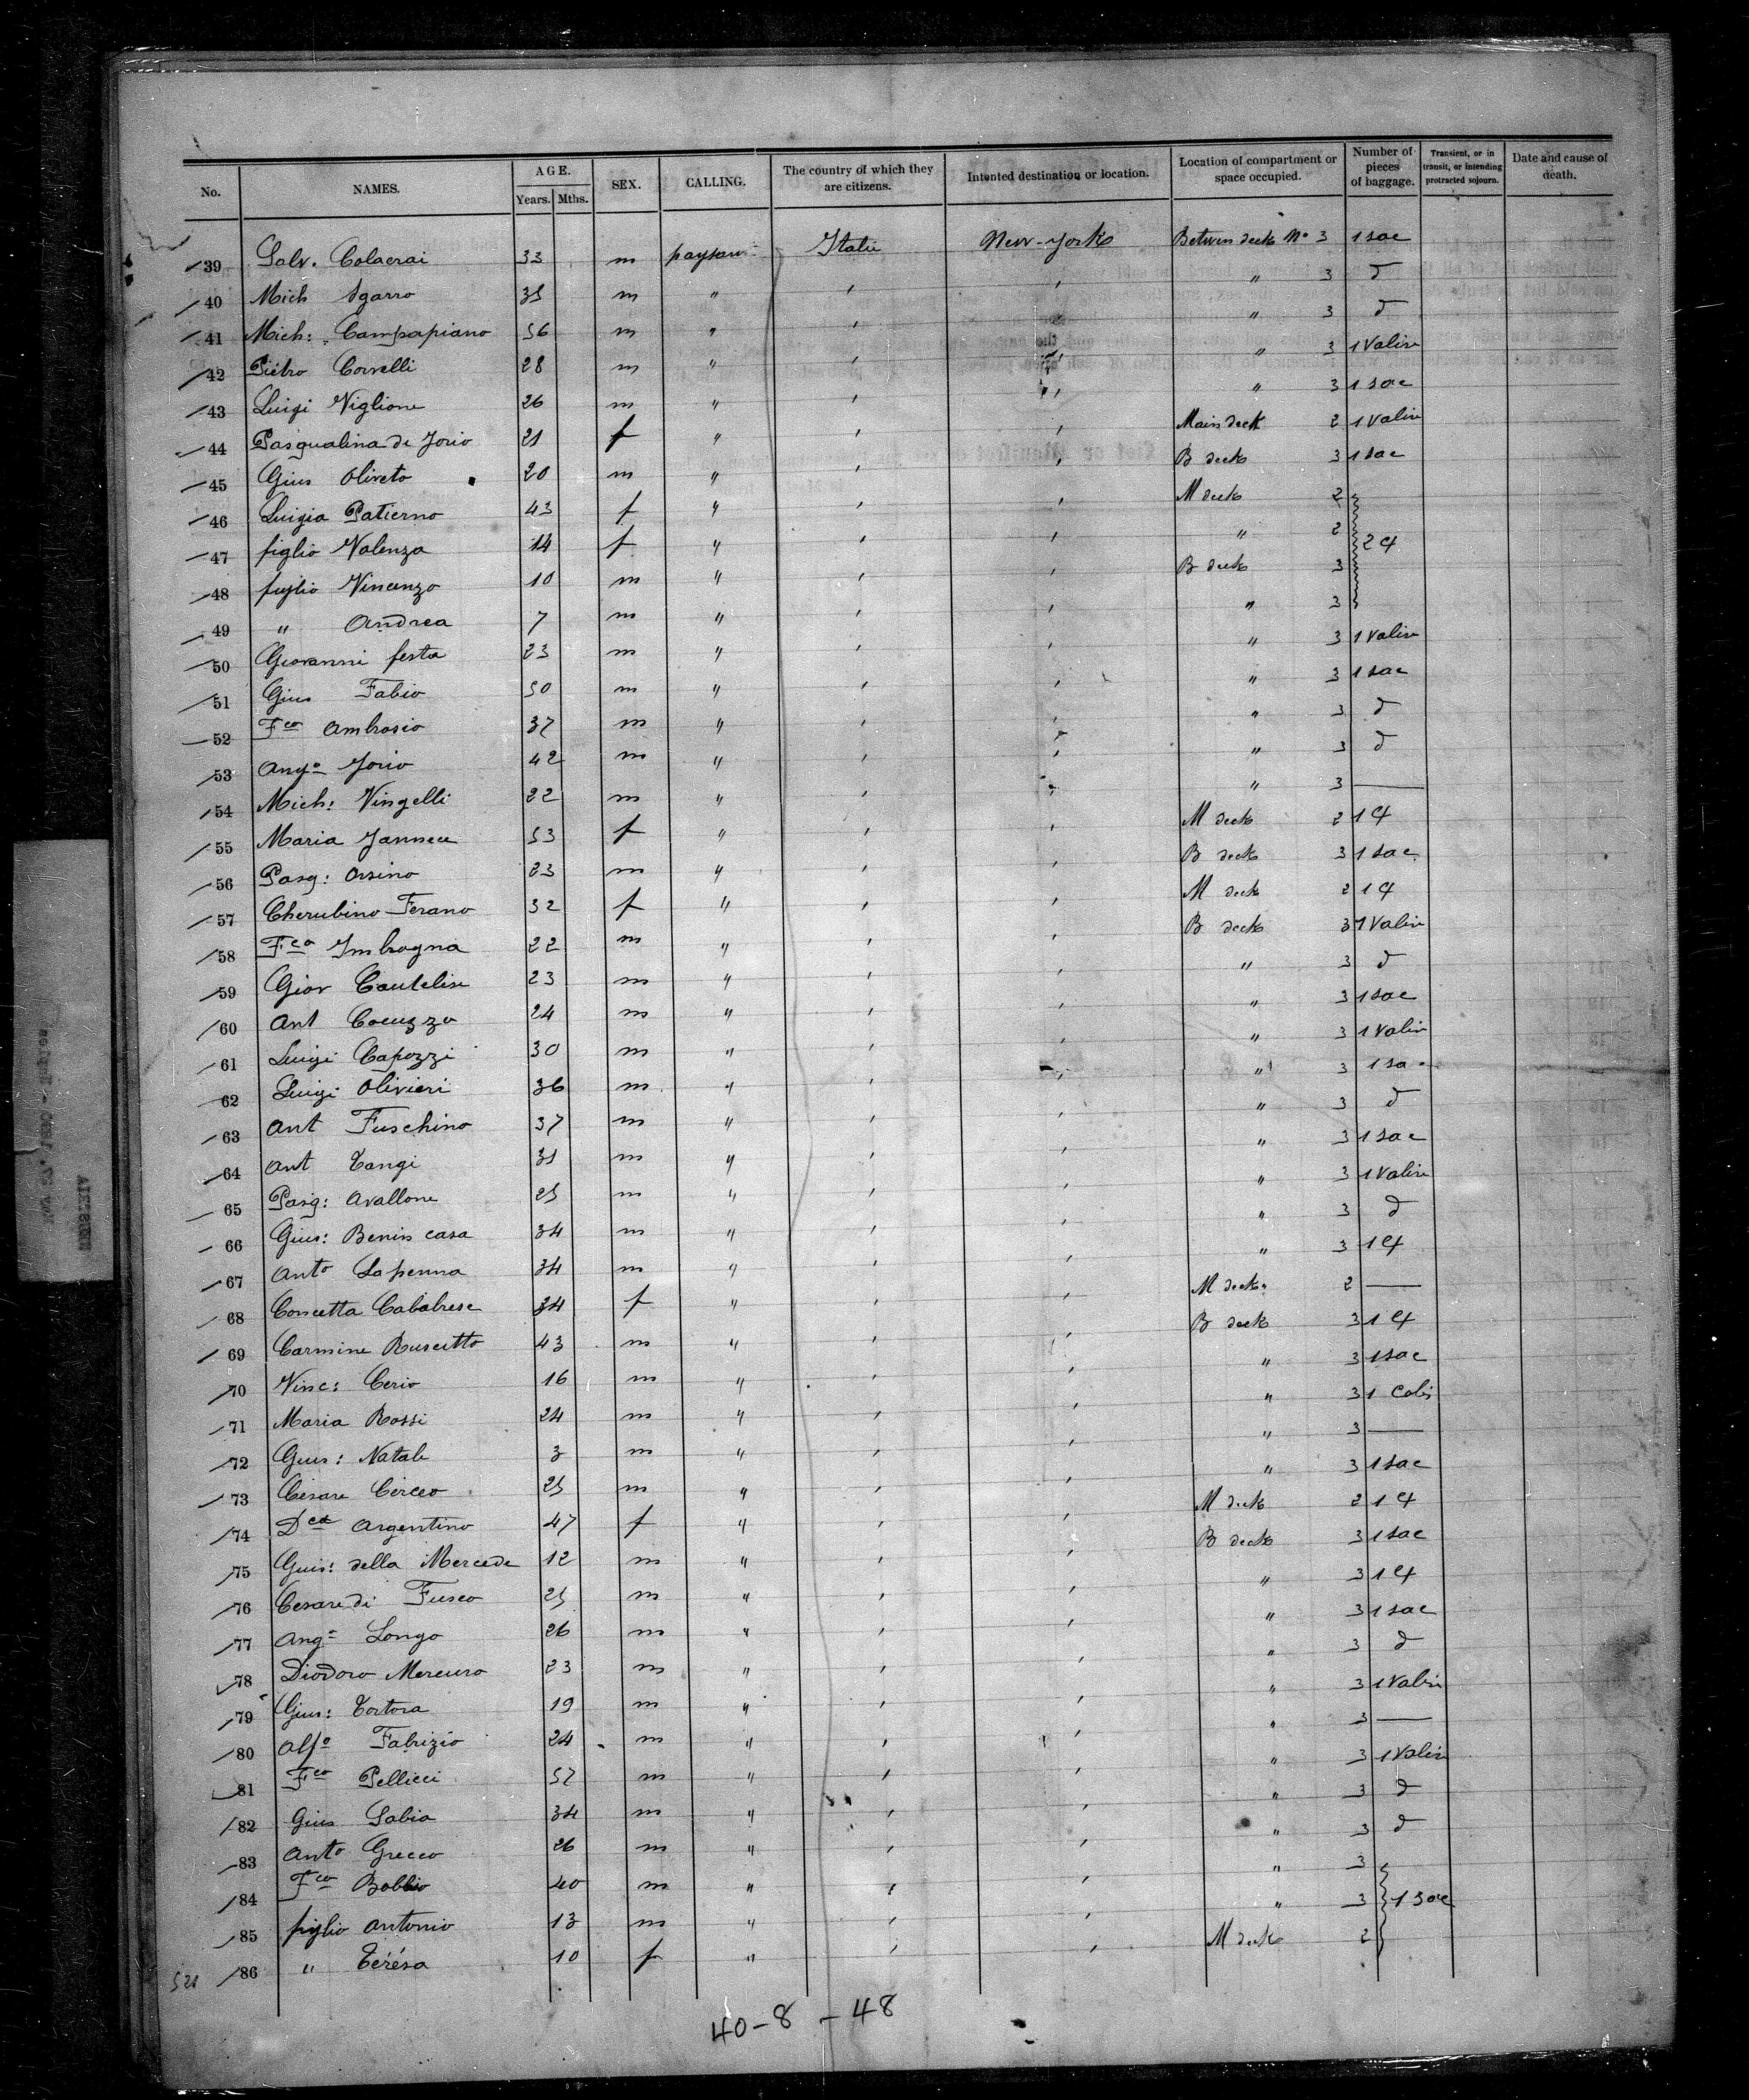 No. NAMES. AGE. Years. Mths. SEX. CALLING. The country of which they are citizens. Intented destination or location. Location of compartment or space occupied. Number of pieces of baggage. Transient, or in transit, or intending protracted sojourn. Date and cause of death.
39 Salv. Colacrai 33 m paysan Italie New-York Betwen deck No 3 1 sac
40 Mich Sgarro 35 m " " " " 3 d
41 Mich: Campapiano 56 m " " " " 3 d
42 Piétro Corvelli 28 m " " " " 3 1 Valise
43 Luigi Viglione 26 m " " " " 3 1 sac
44 Pasqualina di Jorio 21 f " " " Main deck 2 1 Valise
45 Gius Oliveto 20 m " " " B deck 3 1 sac
46 Luigia Patierno 43 f " " " M deck 2
47 figlio Valenza 14 f " " " " 2 2 C/
48 figlio Vincenzo 10 m " " " B deck 3
49 " Andrea 7 m " " " " 3
50 Giovanni festa 23 m " " " " 3 1 Valise
51 Gius Fabio 50 m " " " " 3 1 sac
52 Fco Ambrosio 37 m " " " " 3 d
53 Ango Jorio 42 m " " " " 3 d
54 Mich: Vingelli 22 m " " " " 3 —
55 Maria 53 f " " " M deck 2 1 C/
56 Pasq: Orsino 23 m " " " B deck 3 1 sac
57 Cherubino Ferano 32 f " " " M deck 2 1 C/
58 Fco Imbrogna 22 m " " " B deck 3 1 Valise
59 Giov 23 m " " " " 3 d
60 Ant Cocuzzo 24 m " " " " 3 1 sac
61 Luigi Capozzi 30 m " " " " 3 1 Valise
62 Luigi Olivieri 36 m " " " " 3 1 sac
63 Ant Fuschino 37 m " " " " 3 d
64 Ant Tangi 31 m " " " " 3 1 sac
65 Pasq: Avallone 25 m " " " " 3 1 Valise
66 Gius: Benin casa 34 m " " " " 3 d
67 Anto Lapenna 34 m " " " " 3 1 C/
68 Concetta Cabalrese 34 f " " " M deck 2 —
69 Carmine Ruscitto 43 m " " " B deck 3 1 C/
70 Vinc: Cerio 16 m " " " " 3 1 sac
71 Maria Rossi 24 m " " " " 3 1 Colis
72 Gius: Natale 3 m " " " " 3 —
73 Césare Cerceo 25 m " " " " 3 1 sac
74 Dca Argentino 47 f " " " M deck 2 1 C/
75 Gius: della Mercede 12 m " " " B deck 3 1 sac
76 Cesare di Fusco 25 m " " " " 3 1 C/
77 Ango Longo 26 m " " " " 3 1 sac
78 Diodoro Mercuro 23 m " " " " 3 d
79 Gius: Tortora 19 m " " " " 3 1 Valise
80 Alfo Fabrizio 24 m " " " " 3 —
81 Fco Pellicci 57 m " " " " 3 1 Valise
82 Gius Sabia 34 m " " " " 3 d
83 Anto Grecco 26 m " " " " 3 d
84 Fco Bobbio 40 m " " " " 3
85 figlio Antonio 13 m " " " " 3 1 sac
86 " Térésa 10 f " " " M deck 2
40-8-48